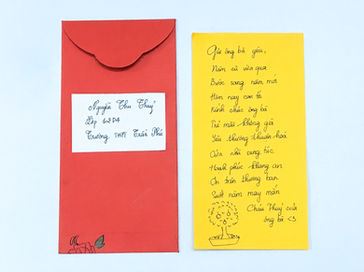 Nguyễn Thu Thuỷ
Lớp 12D4
Trường THPT Trần Phú
Gửi ông bà yêu,
Năm cũ vừa qua
Bước sang năm mới
Hôm nay con tô
Kính chúc ông bà
Trẻ mãi không già
Yêu thương thuận hoà
Cửa nhà sung túc
Hạnh phúc khang an
Ơn trên thương ban
Suốt năm may mắn
Cháu Thuỷ của
ông bà <3